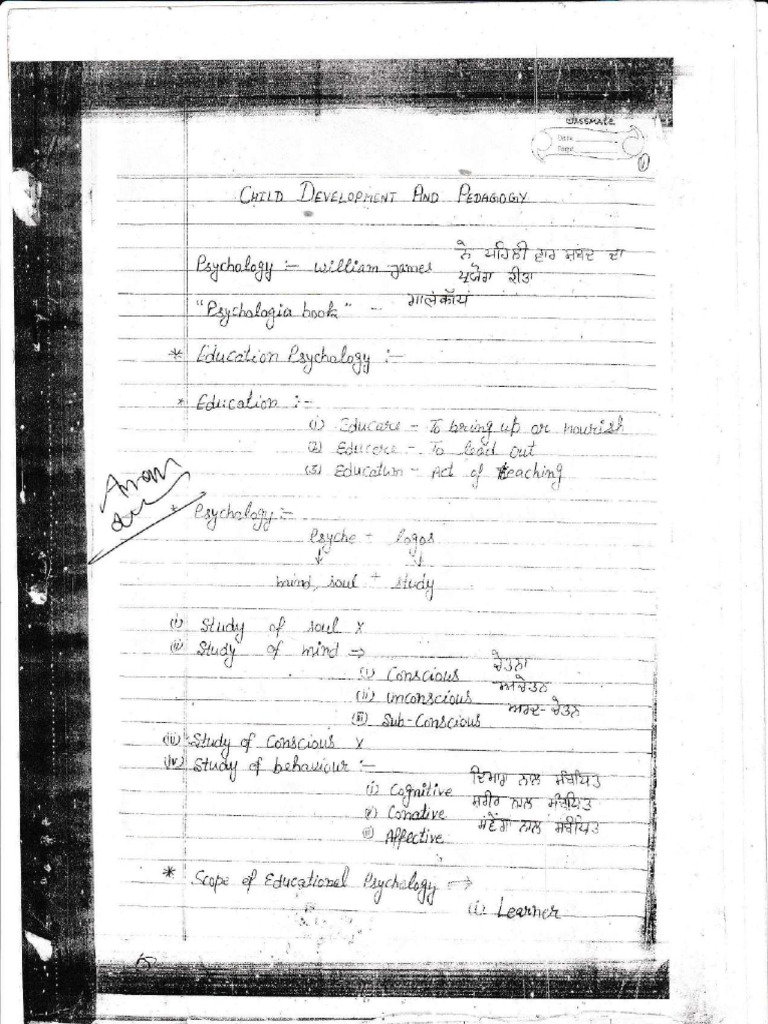 classmate
Date
Page
1
CHILD DEVELOPMENT AND PEDAGOGY
Psychology :- william james ਨੇ ਪਹਿਲੀ ਵਾਰ ਸ਼ਬਦ ਦਾ
ਪ੍ਰਯੋਗ ਕੀਤਾ
"Psychologia book" -
* Education Psychology :-
* Education :-
(1) Educare - To bring up or nourish
(2) Educere - To lead out
(3) Education - Act of teaching
* Psychology :-
Psyche + logos
↓ ↓
mind, soul + study
(i) Study of soul x
(ii) Study of mind ⇒
(i) Conscious ਚੇਤਨਾ
(ii) unconscious ਅਚੇਤਨ
(iii) Sub-Conscious ਅਰਦ-ਚੇਤਨ
(iii) Study of Conscious x
(iv) Study of behaviour :-
(i) Cognitive ਦਿਮਾਗ ਨਾਲ ਸੰਬੰਧਿਤ
Conative ਸਰੀਰ ਨਾਲ ਸੰਬੰਧਿਤ
Affective ਸੰਵੇਗਾਂ ਨਾਲ ਸਬੰਧਿਤ
* Scope of Educational Psychology ⇒
(i) Learner